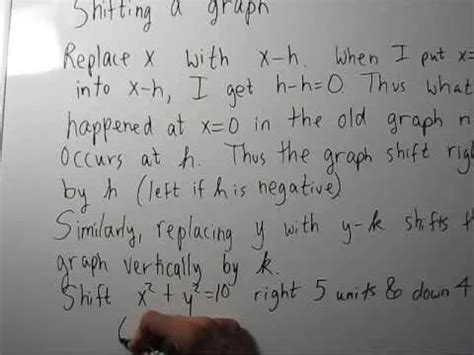 Shifting a graph
Replace x with x-h. When I put x=
into x-h, I get h-h=0. Thus what
happened at x=0 in the old graph n
occurs at h. Thus the graph shift rig
by h (left if h is negative)
Similarly, replacing y with y-k shifts th
graph vertically by k.
Shift x²+y²=10 right 5 units & down 4
(